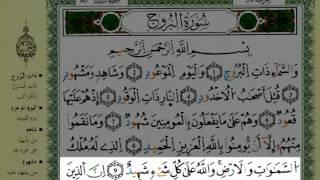 سُورَةُ الْبُرُوجِ
بِسْمِ اللَّهِ الرَّحْمَٰنِ الرَّحِيمِ
وَالسَّمَاءِ ذَاتِ الْبُرُوجِ ١ وَالْيَوْمِ الْمَوْعُودِ ٢ وَشَاهِدٍ وَمَشْهُودٍ
٣ قُتِلَ أَصْحَٰبُ الْأُخْدُودِ ٤ النَّارِ ذَاتِ الْوَقُودِ ٥ إِذْ هُمْ عَلَيْهَا
قُعُودٌ ٦ وَهُمْ عَلَىٰ مَا يَفْعَلُونَ بِالْمُؤْمِنِينَ شُهُودٌ ٧ وَمَا نَقَمُوا
مِنْهُمْ إِلَّا أَن يُؤْمِنُوا بِاللَّهِ الْعَزِيزِ الْحَمِيدِ ٨ الَّذِي لَهُ مُلْكُ
السَّمَٰوَٰتِ وَالْأَرْضِ وَاللَّهُ عَلَىٰ كُلِّ شَيْءٍ شَهِيدٌ ٩ إِنَّ الَّذِينَ